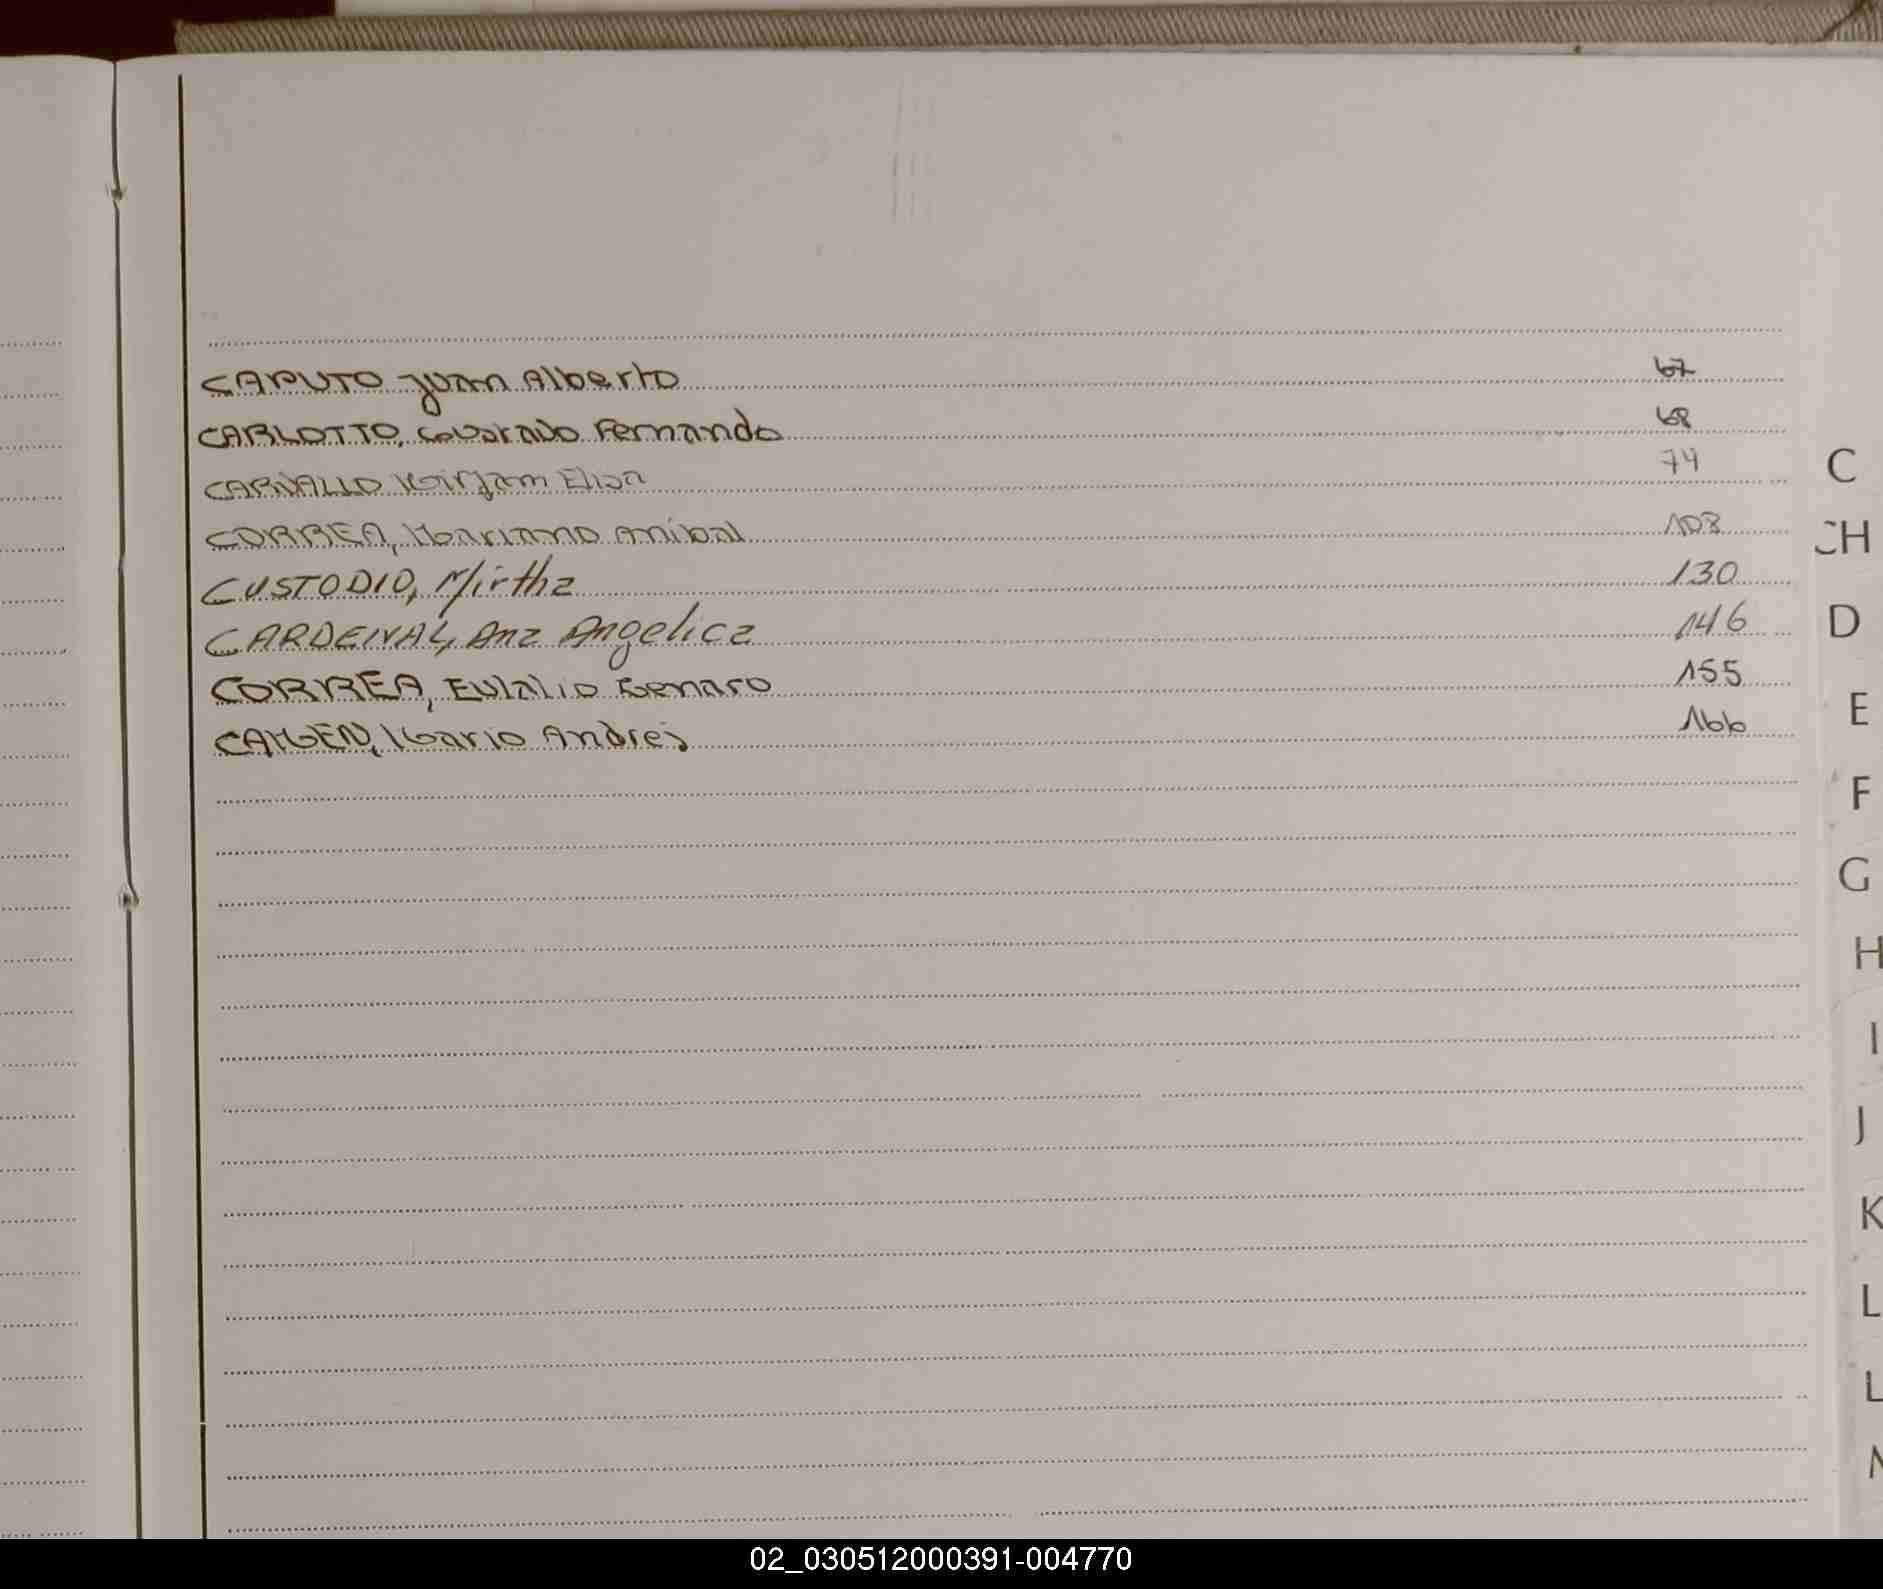 CAPUTO Juan Alberto 67
CARLOTTO, Conrado Fernando 68
CARVALLO Mirjam Elisa 74
CORREA, Mariano Anibal 103
CUSTODIO, Mirtha 130
CARDENAL, Ana Angelica 146
CORREA, Eulalio Genaro 155
CAMEN, Mario Andres 166
C
CH
D
E
F
G
H
I
J
K
L
L
M
02_030512000391-004770